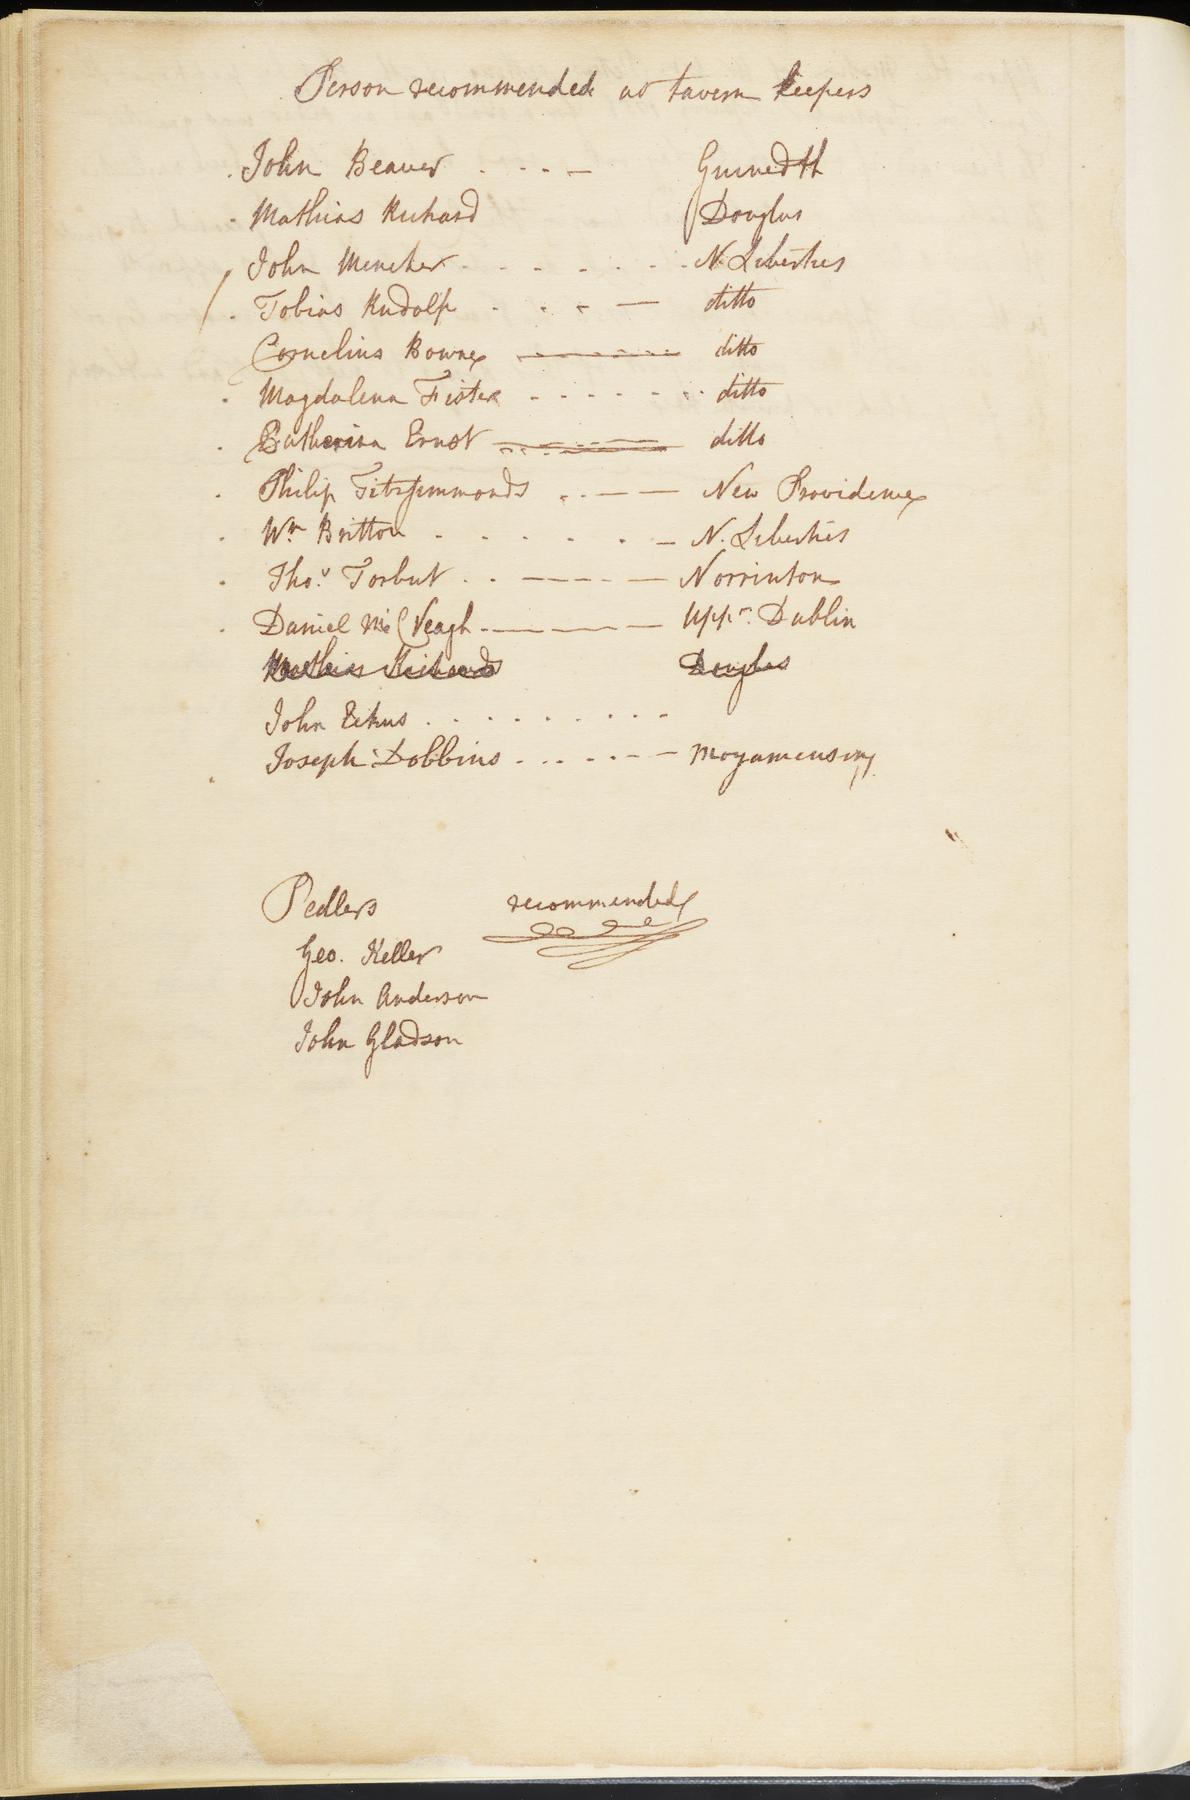 Person recommended as tavern keepers
John Beaver . . . . — Guinedth
Mathias Richard Douglas
John Mencher . . . . . . . N. Liberties
Tobias Rudolph . . . — ditto
Cornelius Bowne ditto
Magdalena Fister . . . . . . . ditto
Catherina Ernst ditto
Philip Fitzsimmonds . . — — New Providence
Wm Britton . . . . . . — N. Liberties
Thos Torbut . . — — — Norrinton
Daniel Mc Veagh — — — Uppr. Dublin
Mathias Richards Douglas
John . . . . . . . . . .
Joseph Dobbins . . . . . — — Moyamensing
Pedlers recommended
Geo. Keller
John Anderson
John Gladson